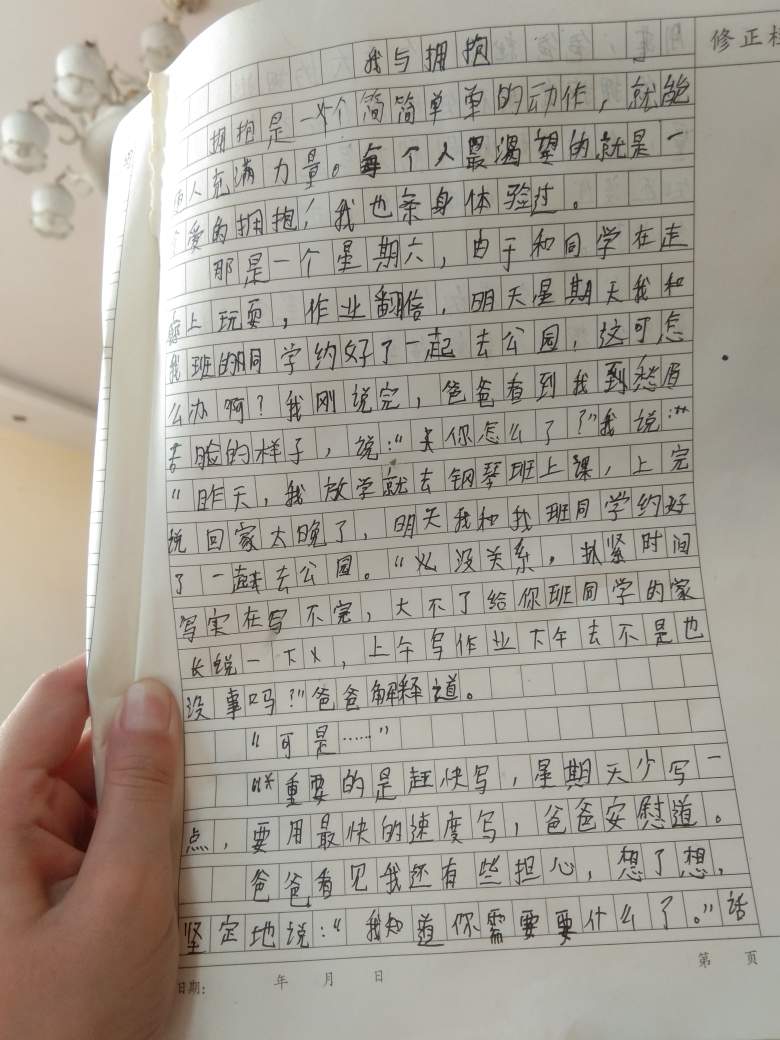 修正栏
我与拥抱
拥抱是一个简简单单的动作，就能
人充满力量。每个人最渴望的就是一
爱的拥抱！我也亲身体验过。
那是一个星期六，由于和同学在走
上玩耍，作业翻倍，明天星期天我和
我班的同学约好了一起去公园，这可怎
么办啊？我刚说完，爸爸看到我到愁眉
苦脸的样子，说：“你怎么了？”我说：
“昨天，我放学就去钢琴班上课，上完
回家太晚了，明天我和我班同学约好
了一起去公园。“没关系，抓紧时间
写实在写不完，大不了给你班同学的家
长说一下，上午写作业下午去不是也
没事吗？”爸爸解释道。
“可是……”
“重要的是赶快写，星期天少写一
点，要用最快的速度写，爸爸安慰道。
爸爸看见我还有些担心，想了想，
坚定地说：“我知道你需要要什么了。”话
日期： 年 月 日
第 页